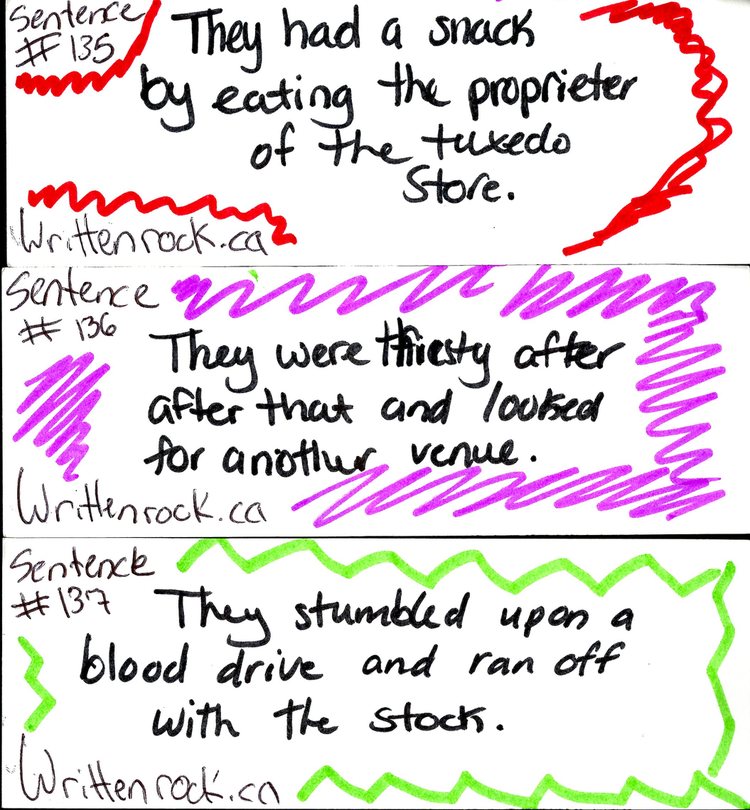 Sentence
#135
They had a snack
by eating the proprieter
of the tuxedo
Store.
Writtenrock.ca
Sentence
#136
They were thirsty after
after that and looked
for another venue.
Writtenrock.ca
Sentence
#137
They stumbled upon a
blood drive and ran off
with the stock.
Writtenrock.ca